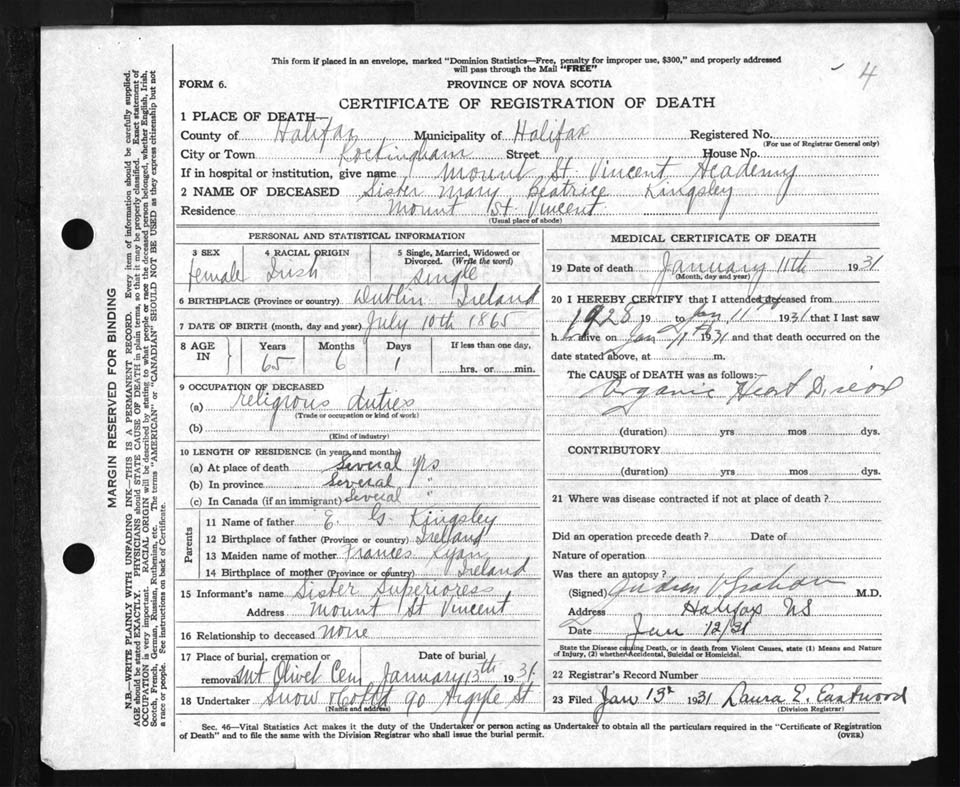 This form if placed in an envelope, marked "Dominion Statistics—Free, penalty for improper use, $300," and properly addressed
will pass through the Mail "FREE"
4
FORM 6.
PROVINCE OF NOVA SCOTIA
CERTIFICATE OF REGISTRATION OF DEATH
1 PLACE OF DEATH—
County of Halifax Municipality of Halifax Registered No.
(For use of Registrar General only)
City or Town Rockingham Street House No.
If in hospital or institution, give name Mount St. Vincent Academy
2 NAME OF DECEASED Sister Mary Beatrice Kingsley
Residence Mount St Vincent
(Usual place of abode)
PERSONAL AND STATISTICAL INFORMATION
3 SEX 4 RACIAL ORIGIN 5 Single, Married, Widowed or
Divorced. (Write the word)
female Irish single
6 BIRTHPLACE (Province or country) Dublin Ireland
7 DATE OF BIRTH (month, day and year) July 10th 1865
8 AGE IN Years Months Days If less than one day,
65 6 1 hrs. or min.
9 OCCUPATION OF DECEASED
(a) religious duties
(Trade or occupation or kind of work)
(b)
(Kind of industry)
10 LENGTH OF RESIDENCE (in years and months)
(a) At place of death Several yrs
(b) In province Several "
(c) In Canada (if an immigrant) Several "
Parents
11 Name of father E. G. Kingsley
12 Birthplace of father (Province or country) Ireland
13 Maiden name of mother Frances Ryan
14 Birthplace of mother (Province or country) Ireland
15 Informant's name Sister Superioress
Address Mount St Vincent
16 Relationship to deceased none
17 Place of burial, cremation or Date of burial
removal Mt Olivet Cem January 13th 1931
18 Undertaker Snow & Co Ltd 90 Argyle St
(Name and address)
MEDICAL CERTIFICATE OF DEATH
19 Date of death January 11th 1931
(Month, day and year)
20 I HEREBY CERTIFY that I attended deceased from
1928 19 to Jan 11th 1931 that I last saw
h alive on Jan 11th 1931 and that death occurred on the
date stated above, at m.
The CAUSE of DEATH was as follows:
Organic Heart Disease
(duration) yrs mos dys.
CONTRIBUTORY
(duration) yrs mos dys.
21 Where was disease contracted if not at place of death?
Did an operation precede death? Date of
Nature of operation
Was there an autopsy?
(Signed) Graham M.D.
Address Halifax NS
Date Jan 12/31
State the Disease causing Death, or in death from Violent Causes, state (1) Means and Nature
of Injury, (2) whether Accidental, Suicidal or Homicidal.
22 Registrar's Record Number
23 Filed Jan 13th 1931 Laura E. Eastwood
(Division Registrar)
Sec. 46—Vital Statistics Act makes it the duty of the Undertaker or person acting as Undertaker to obtain all the particulars required in the "Certificate of Registration
of Death" and to file the same with the Division Registrar who shall issue the burial permit.
(OVER)
MARGIN RESERVED FOR BINDING
N.B.—WRITE PLAINLY WITH UNFADING INK—THIS IS A PERMANENT RECORD. Every item of information should be carefully supplied.
AGE should be stated EXACTLY. PHYSICIANS should STATE CAUSE OF DEATH in plain terms, so that it may be properly classified. Exact statement of
OCCUPATION is very important. RACIAL ORIGIN will be described by stating to what people or race the deceased person belonged, whether English, Irish,
Scotch, French, German, Russian, Ruthenian, etc. The terms "AMERICAN" or "CANADIAN" SHOULD NOT BE USED as they express citizenship but not
a race or people. See instructions on back of Certificate.